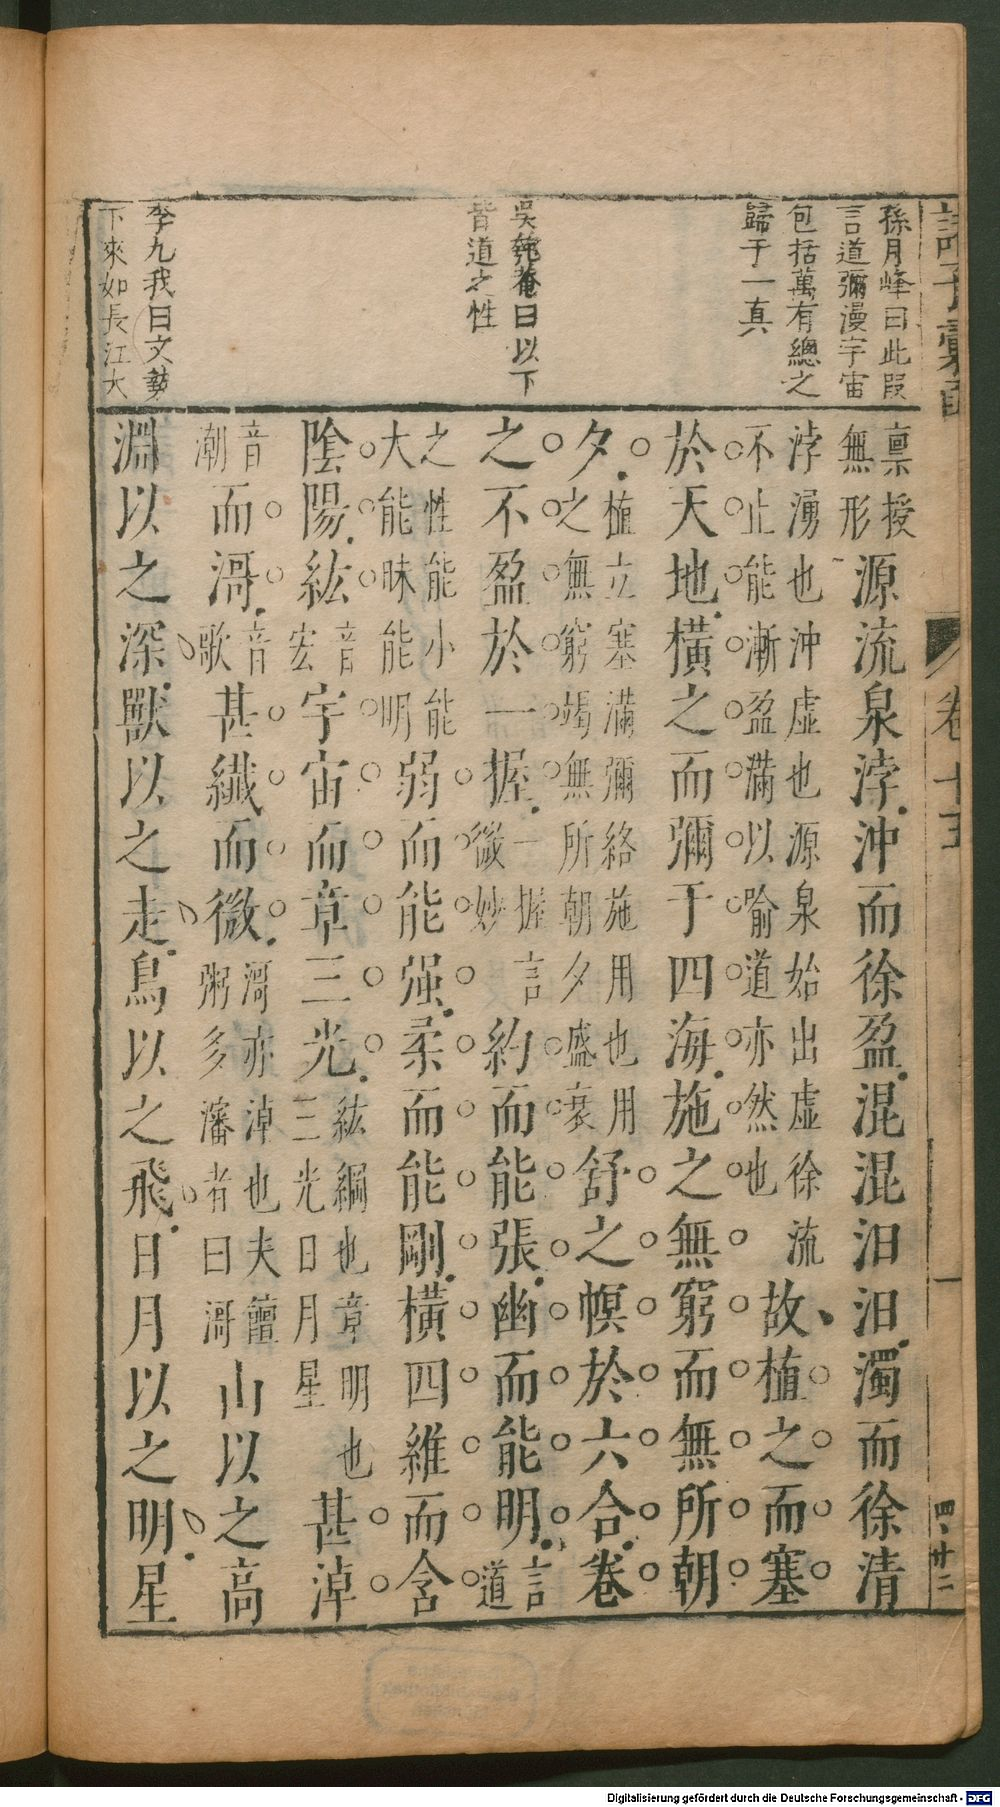 諸子彙函
卷十五
一
四、廿二
孫月峰曰此段
言道彌漫宇宙
包括萬有總之
歸于一真
吳匏菴曰以下
皆道之性
李九我曰文勢
下來如長江大
稟授
無形
源流泉浡冲而徐盈混混汩汩濁而徐清
浡湧也冲虛也源泉始出虛徐流
不止能漸盈滿以喻道亦然也
故植之而塞
於天地橫之而彌于四海施之無窮而無所朝
夕
植立塞滿彌絡施用也用
之無窮竭無所朝夕盛衰
舒之幎於六合卷
之不盈於一握
一握言
微妙
約而能張幽而能明
言
道
之性能小能
大能昧能明
弱而能强柔而能剛橫四維而含
陰陽紘
音
宏
宇宙而章三光
紘綱也章明也
三光日月星
甚淖
音
潮
而滒
音
歌
甚纖而微
滒亦淖也夫饘
粥多瀋者曰滒
山以之高
淵以之深獸以之走鳥以之飛日月以之明星
Digitalisierung gefördert durch die Deutsche Forschungsgemeinschaft - DFG